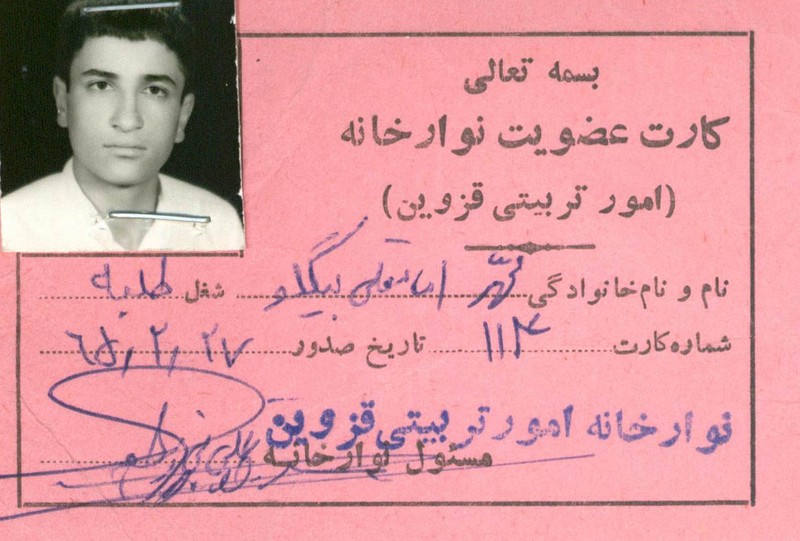 بسمه تعالی
کارت عضویت نوارخانه
(امور تربیتی قزوین)
نام و نام‌خانوادگی امامقلی بیگلو شغل طلبه
شماره کارت ۱۱۳ تاریخ صدور ۶۵/۲/۲۷
نوارخانه امور تربیتی قزوین
مسئول نوارخانه